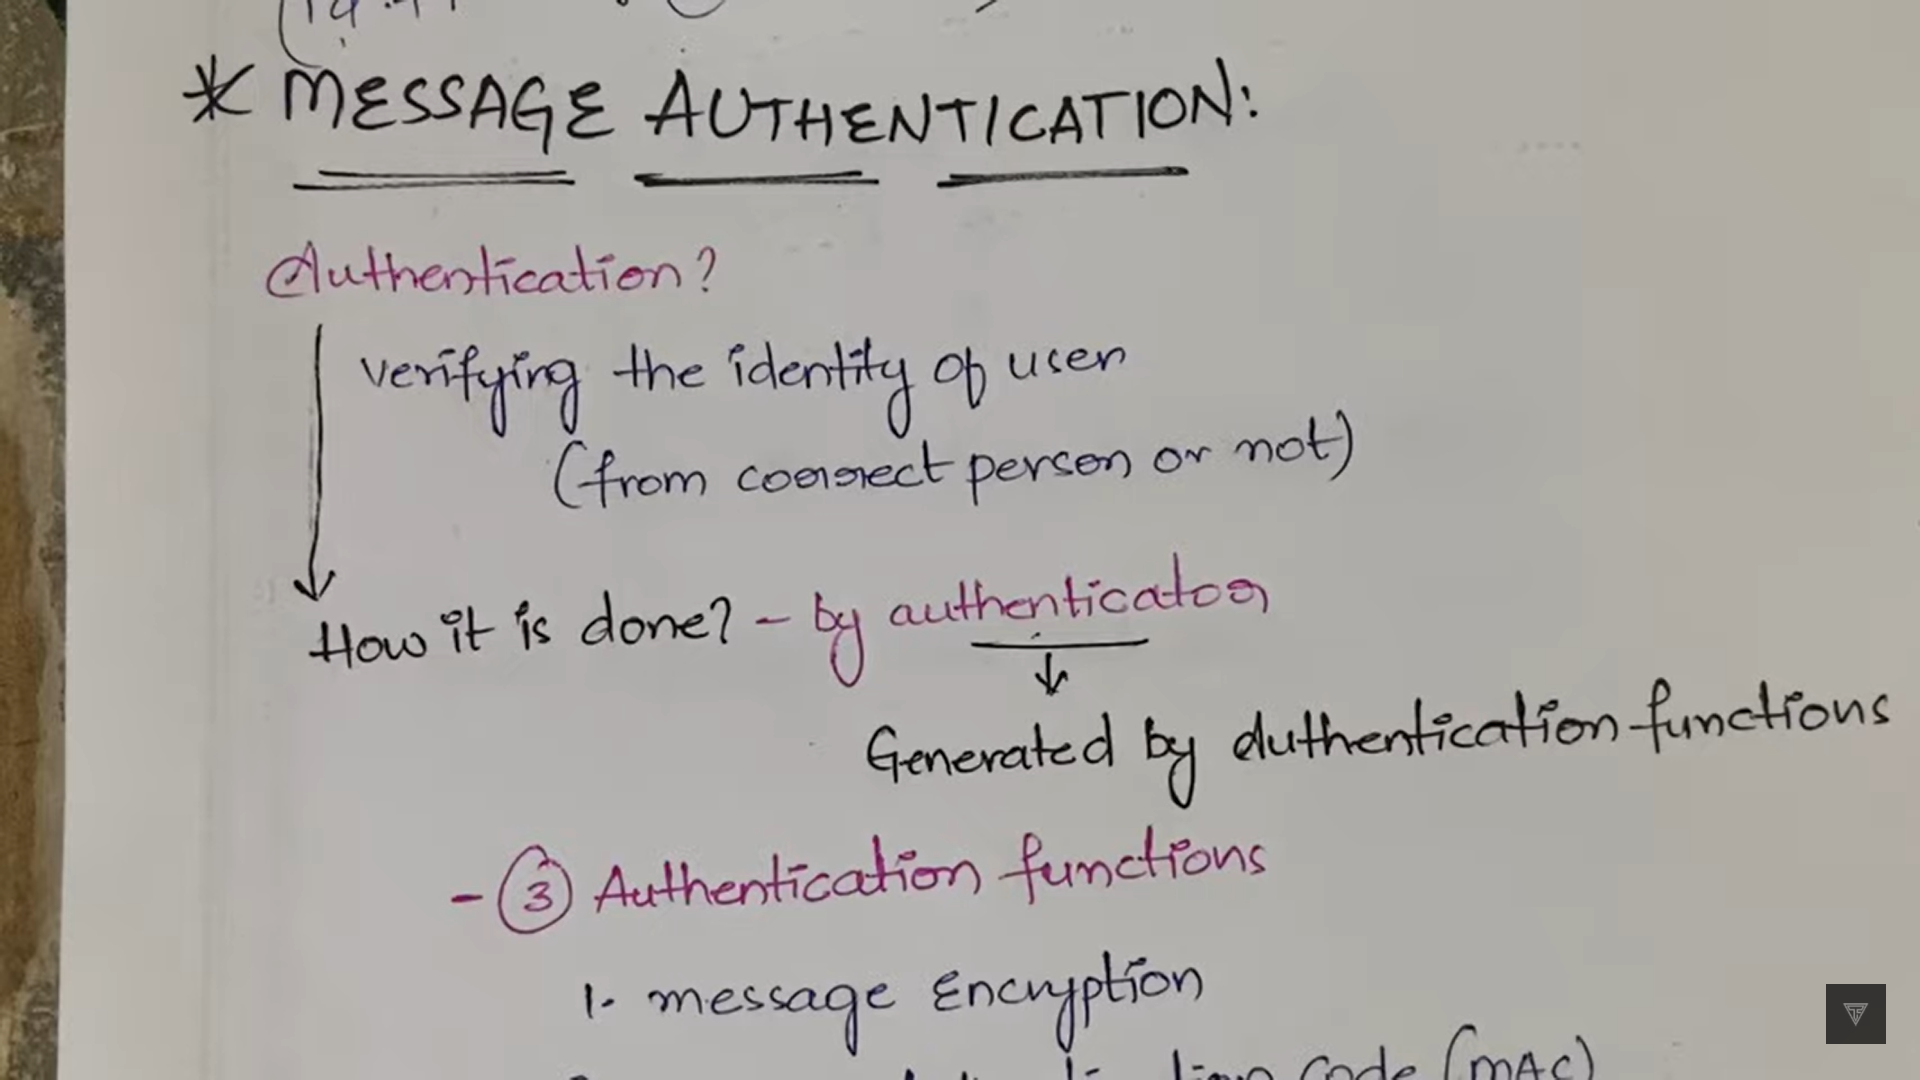 * MESSAGE AUTHENTICATION:
Authentication?
verifying the identity of user
(from correct person or not)
How it is done? - by authenticator
Generated by Authentication functions
- 3 Authentication functions
1. message Encryption
code (MAC)